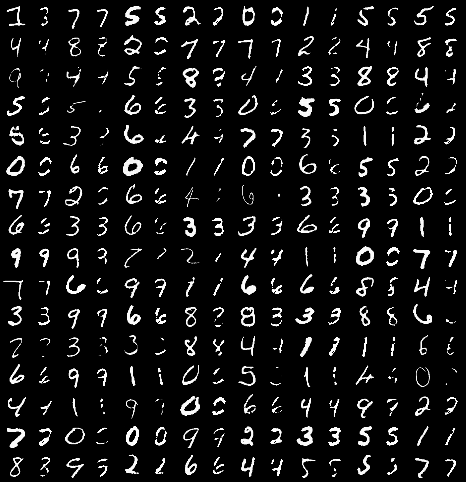 1 3 7 7 5 5 2 2 0 0 1 1 5 5 5 5
4 4 8 8 2 0 7 7 7 7 2 2 4 4 8 8
9 4 4 5 5 8 8 4 3 3 8 8 4 4
5 5 6 6 3 3 0 5 5 0 6
5 3 6 4 7 7 3 3 1 1 2 2
0 0 6 6 0 0 1 1 0 0 6 6 5 5 2 2
7 7 2 0 6 6 4 6 3 3 3 3 0 0
6 6 3 3 6 6 3 3 3 3 6 6 9 9 1 1
9 9 9 9 7 2 4 4 1 1 0 0 7 7
7 7 6 6 9 9 1 1 6 6 6 6 8 8 4 4
3 3 9 9 6 6 8 8 8 3 3 3 8 8 6
7 3 3 3 8 8 4 4 1 1 1 1 6 6
6 6 9 9 1 1 0 5 1 1 4 0
4 4 1 1 9 9 0 0 6 6 4 4 9 9 2 2
7 2 0 0 0 0 9 9 2 2 3 3 5 5 1 1
8 8 9 5 2 2 6 6 4 4 5 5 5 5 7 7